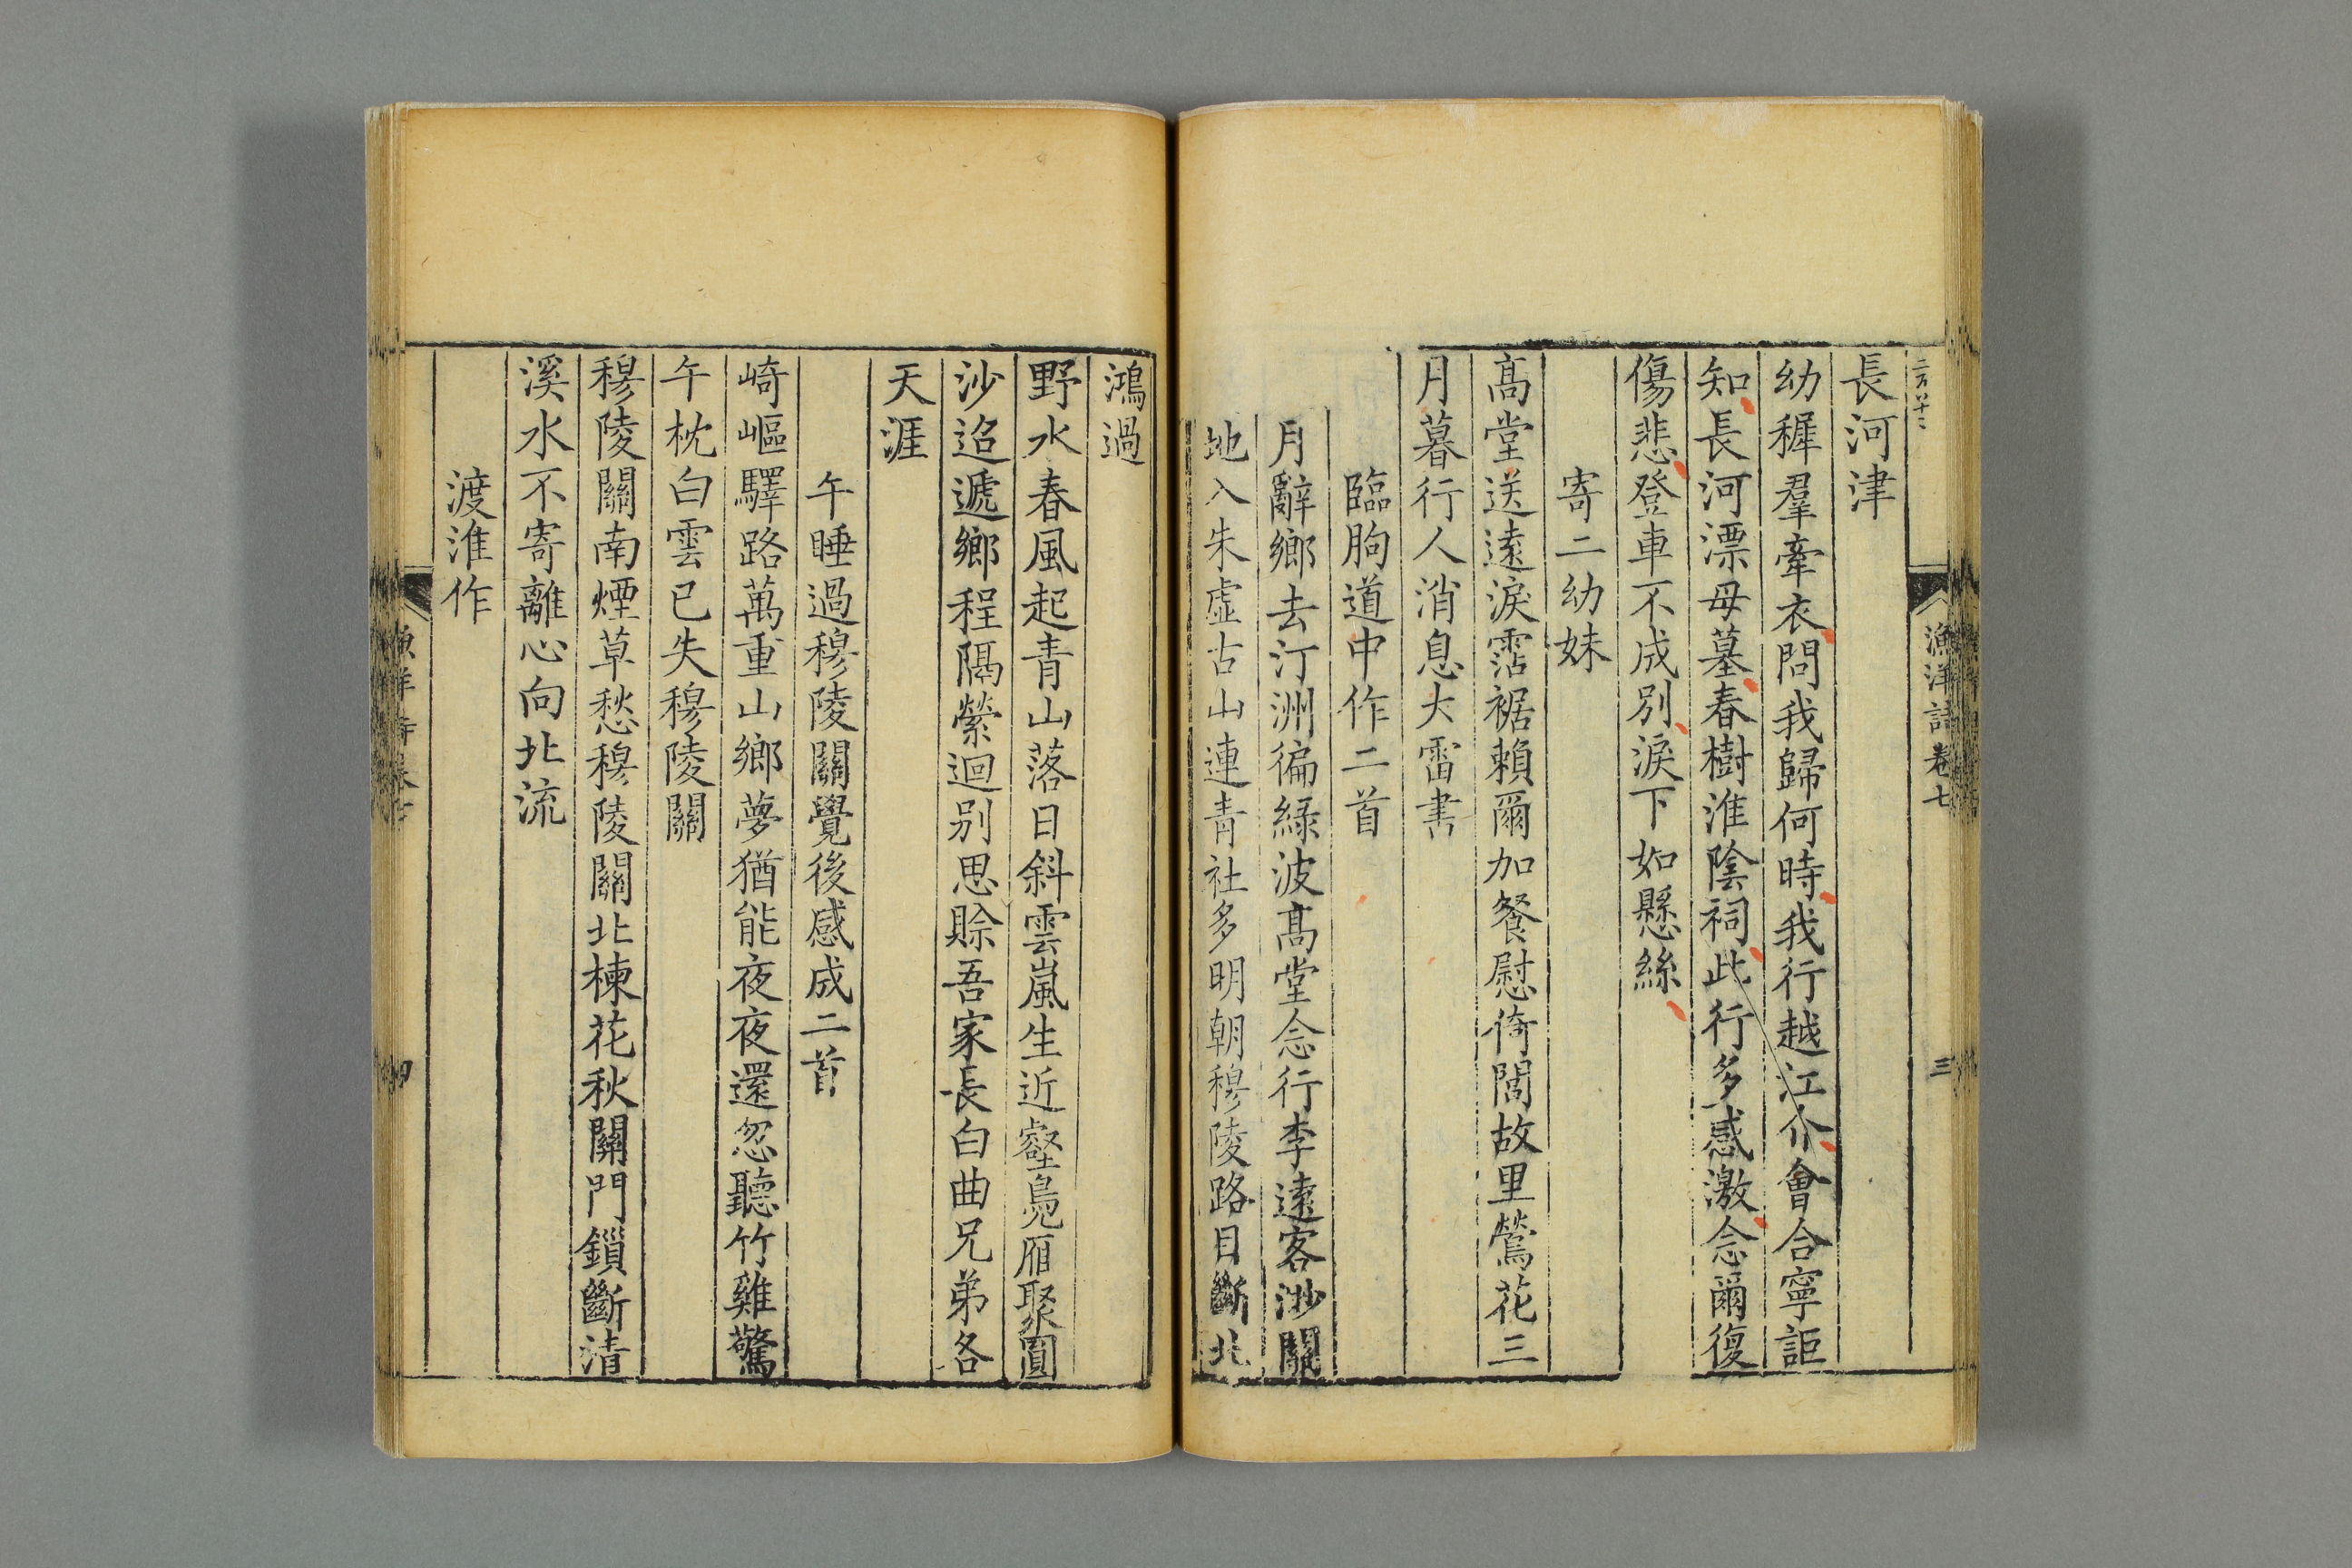 漁洋詩卷七
三
長河津
幼穉羣牽衣問我歸何時我行越江介會合寧詎
知長河漂母墓春樹淮陰祠此行多感激念爾復
傷悲登車不成別淚下如懸絲
寄二幼妹
高堂送遠淚霑裾賴爾加餐慰倚閭故里鶯花三
月暮行人消息大雷書
臨朐道中作二首
月辭鄉去汀洲徧綠波高堂念行李遠客渺關
地入朱虛古山連青社多明朝穆陵路目斷北
鴻過
野水春風起青山落日斜雲嵐生近壑鳧雁聚圓
沙迢遞鄉程隔縈迴别思賒吾家長白曲兄弟各
天涯
午睡過穆陵關覺後感成二首
崎嶇驛路萬重山鄉夢猶能夜夜還忽聽竹雞驚
午枕白雲已失穆陵關
穆陵關南煙草愁穆陵關北楝花秋關門鎖斷清
溪水不寄離心向北流
渡淮作
漁洋詩卷七
四